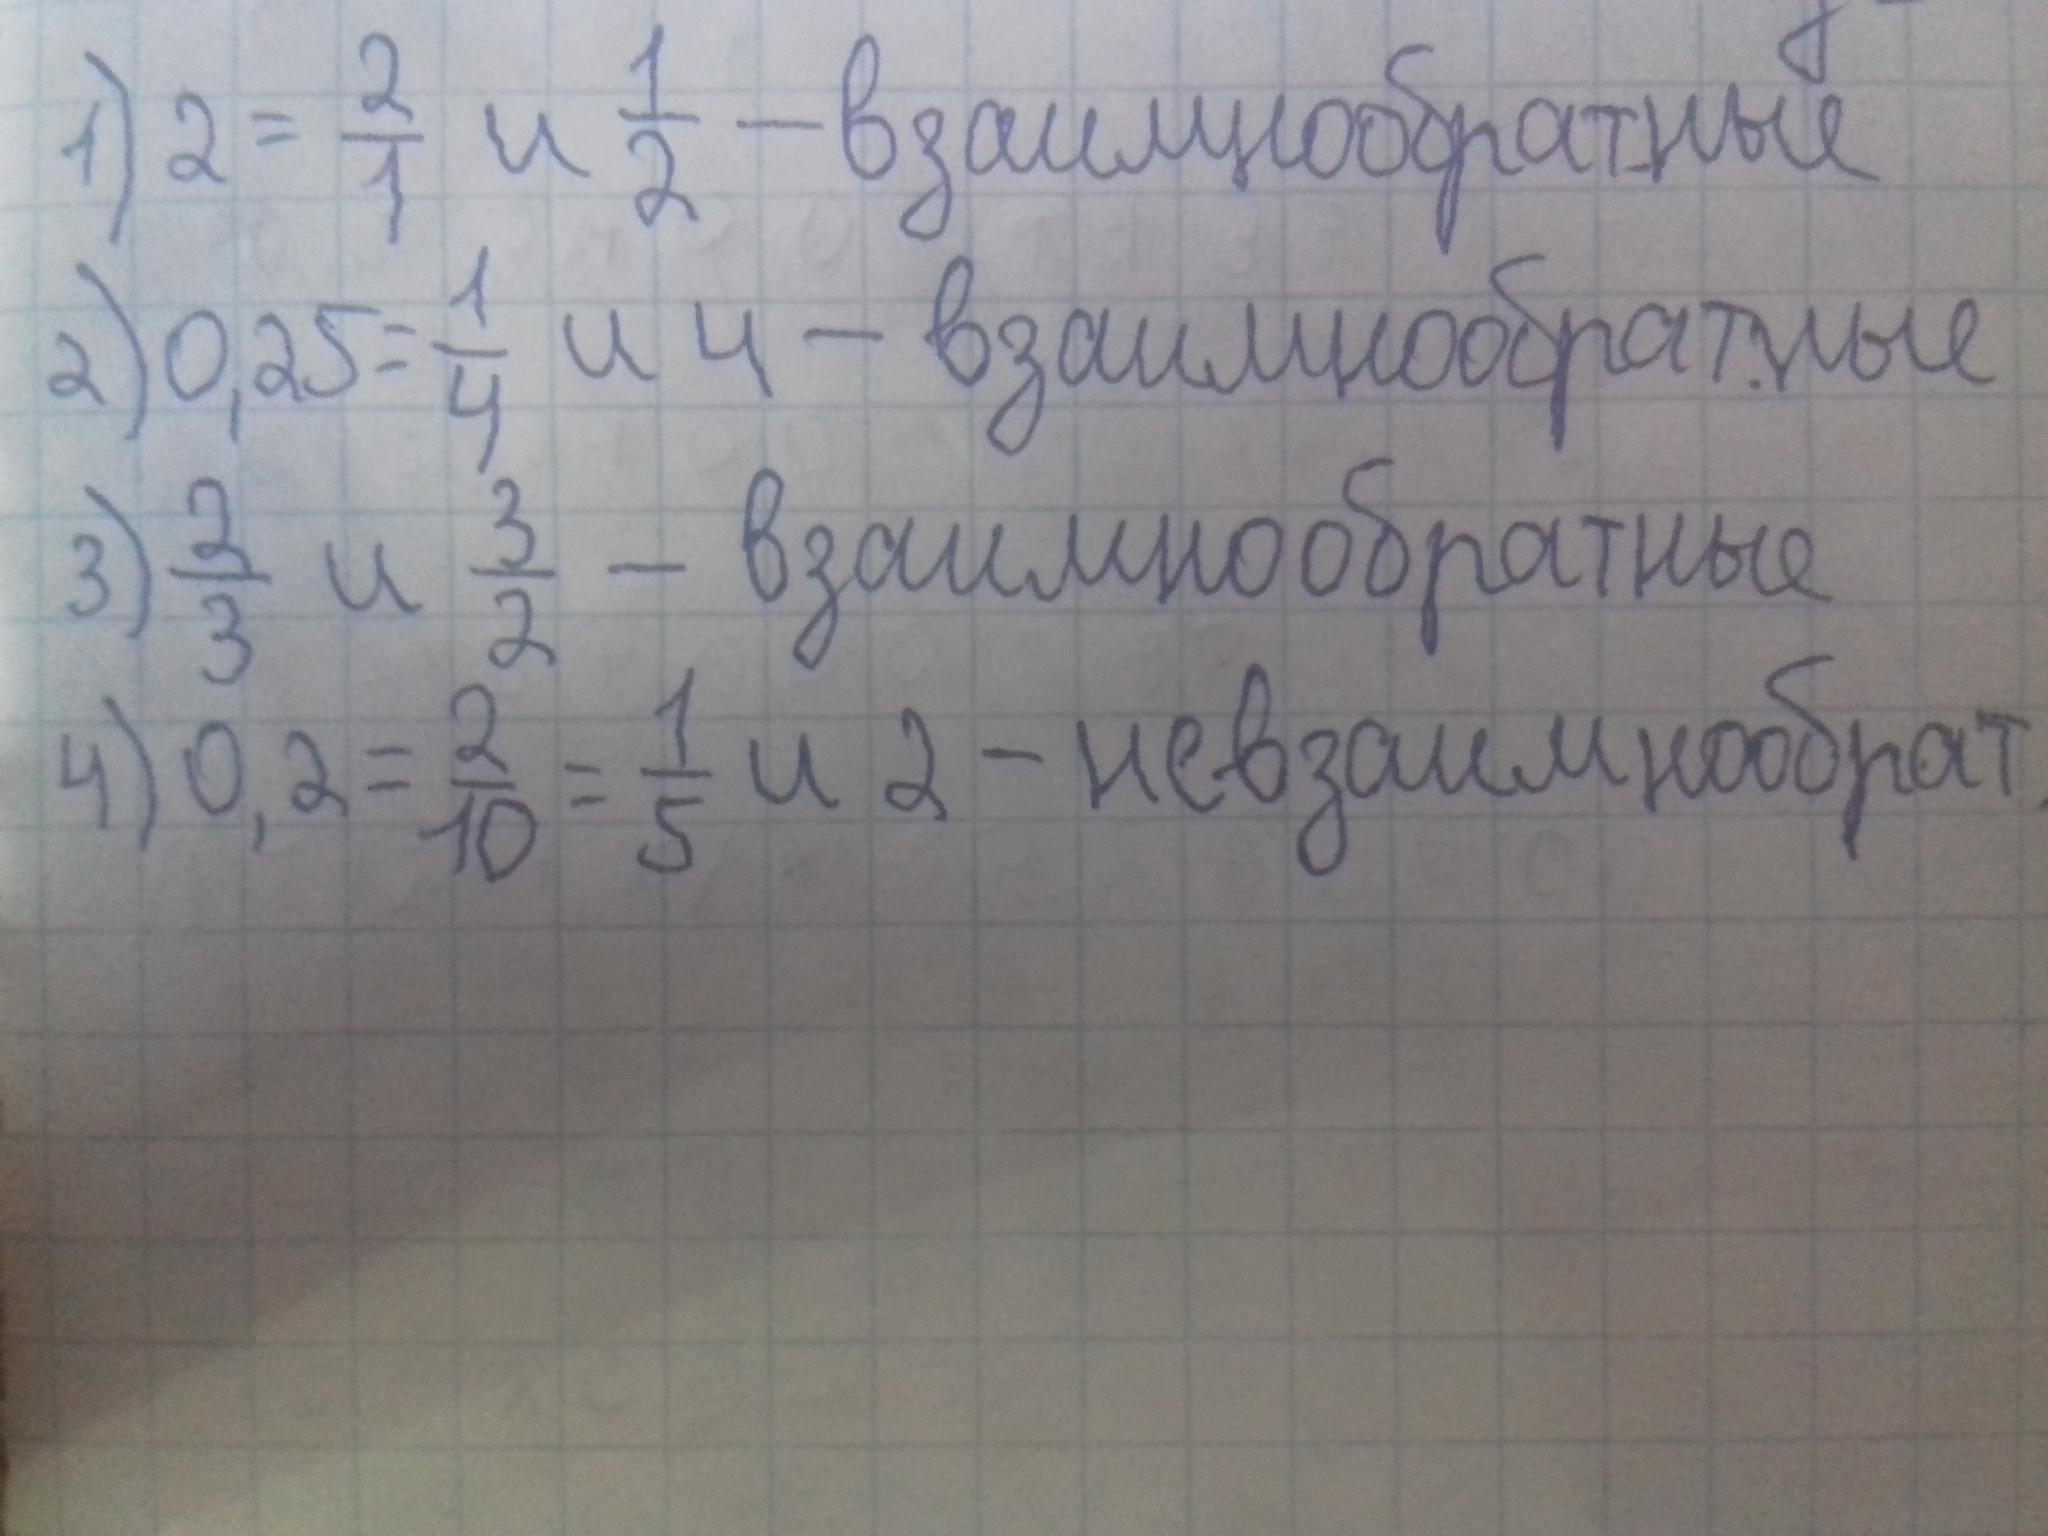 1) 2 = 2/1 и 1/2 — взаимнообратные
2) 0,25 = 1/4 и 4 — взаимнообратные
3) 2/3 и 3/2 — взаимнообратные
4) 0,2 = 2/10 = 1/5 и 2 — невзаимнообрат.